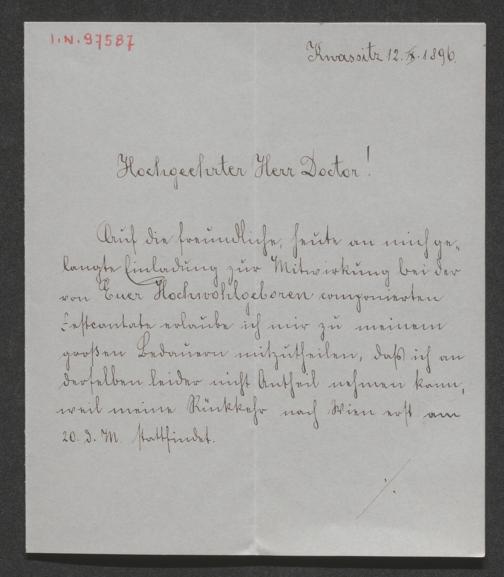 I.N. 97587
Kwassitz 12. IX. 1896.
Hochgeehrter Herr Doctor!
Auf die freundliche, heute an mich ge-
langte Einladung zur Mitwirkung bei der
von Euer Hochwohlgeboren componierten
Festcantate erlaube ich mir zu meinem
großen Bedauern mitzutheilen, daß ich an
derselben leider nicht Antheil nehmen kann,
weil meine Rückkehr nach Wien erst am
20. d. M. stattfindet.